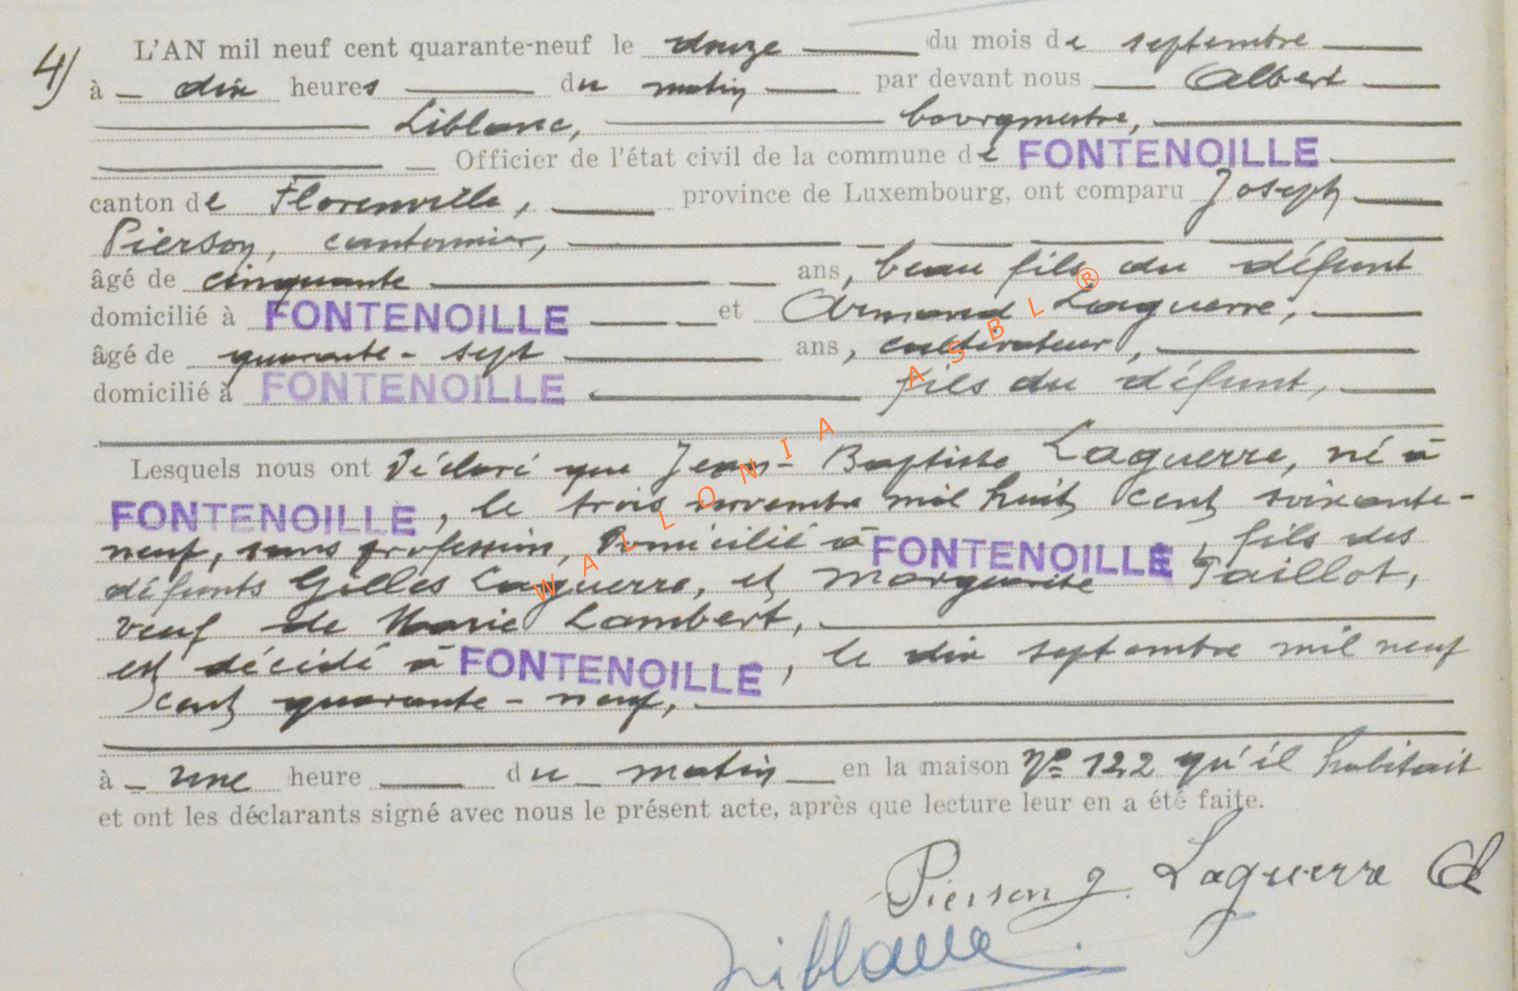 4) L'AN mil neuf cent quarante-neuf le douze du mois de septembre
à dix heures du matin par devant nous Albert
Liblanc, bourgmestre,
Officier de l'état civil de la commune de FONTENOILLE
canton de Florenville, province de Luxembourg, ont comparu Joseph
Pierson, cantonnier,
âgé de cinquante ans, beau fils du défunt
domicilié à FONTENOILLE et Armand Laguerre,
âgé de quarante-sept ans, cultivateur,
domicilié à FONTENOILLE fils du défunt,
Lesquels nous ont déclaré que Jean-Baptiste Laguerre, né à
FONTENOILLE, le trois novembre mil huit cent soixante-
neuf, sans profession, domicilié à FONTENOILLE, fils des
défunts Gilles Laguerre, et Marguerite Paillot,
veuf de Marie Lambert,
est décédé à FONTENOILLE, le dix septembre mil neuf
cent quarante-neuf,
à une heure du matin en la maison N° 122 qu'il habitait
et ont les déclarants signé avec nous le présent acte, après que lecture leur en a été faite.
Pierson J. Laguerre A
Liblanc
WALLONIA ASBL®